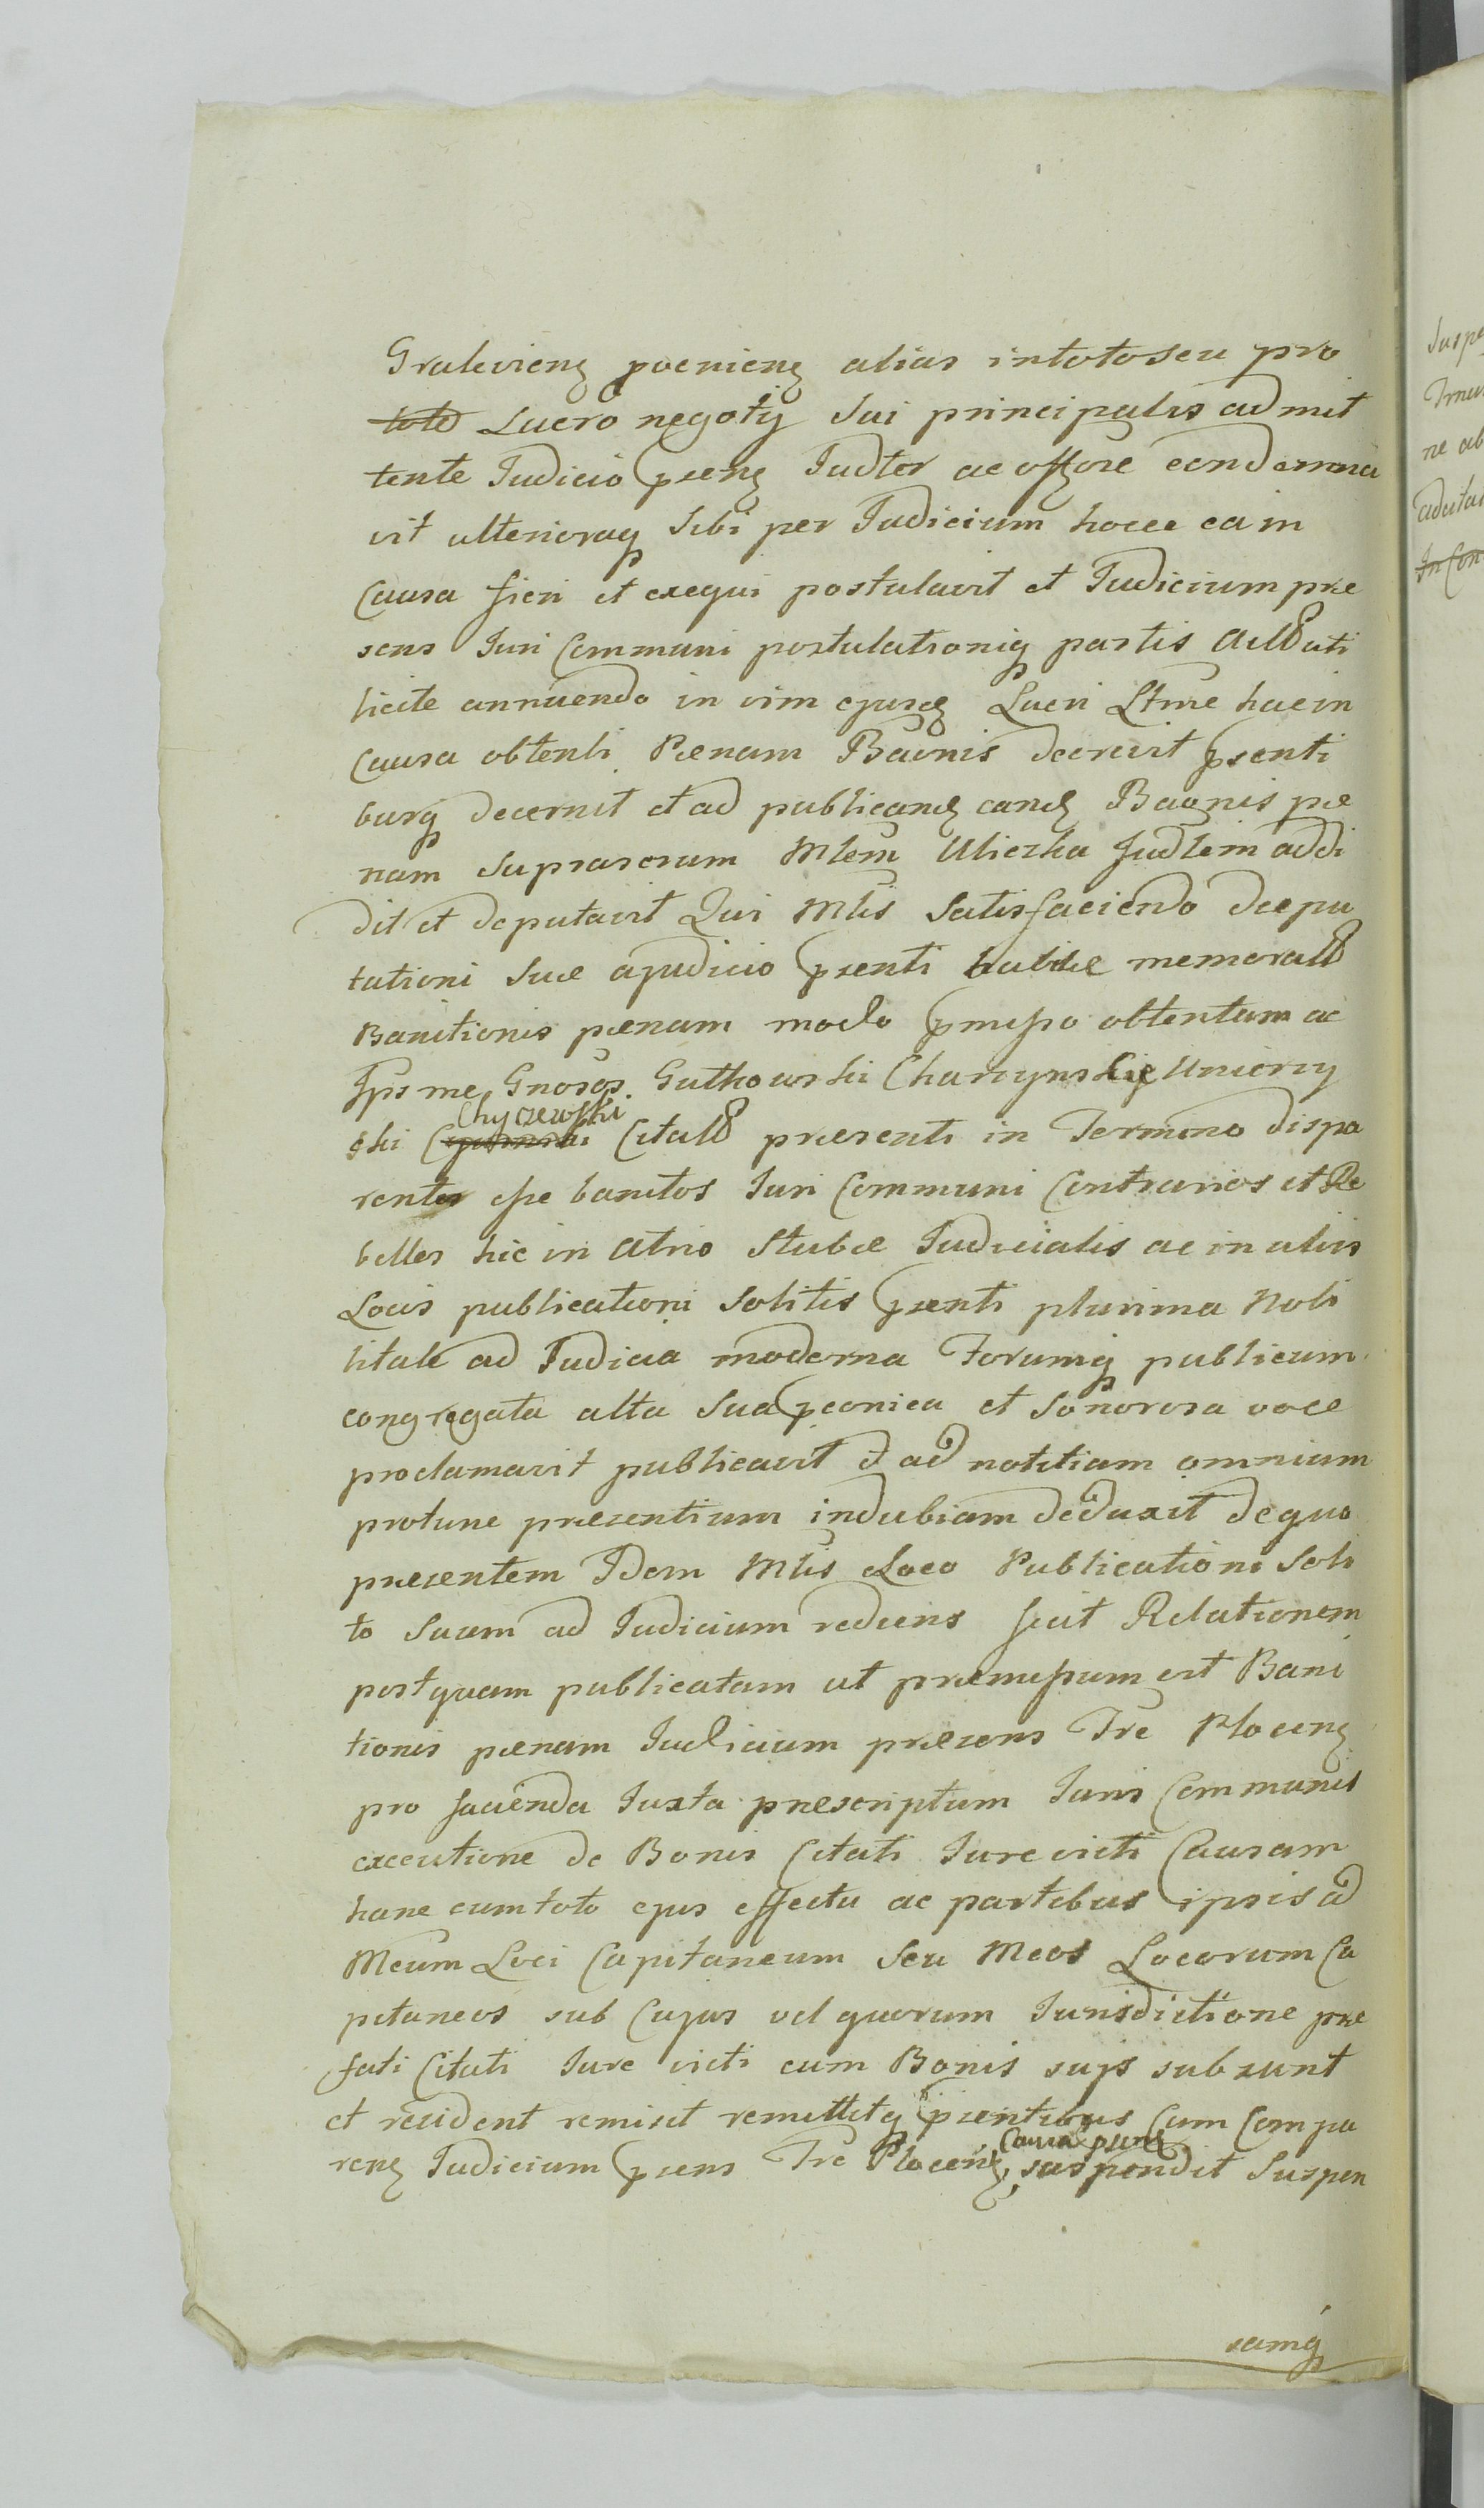 Gralevieng poenieng alias intotoseu pro
toto Lucro negotij Sui principalis admit
tente Judicio pseng Judter ac offose condemna
vit ulterioraq sibi per Judicium hocce ea in
Causa fieri et exequi postulavit et Judicium prae
sens Juri Communi postulationiq partis uti
licite annuendo in vim ejusd Lucri Ltme hac in
Causa obtenti Paenam Baonis decrevit psenti
busq decernit et ad publicand eand Baonis pae
nam suprascram Mlem Uliczka Judlem addi
dit et deputavit Qui Mlis Satisfaciendo deepu
tationi Suae a judicio psenti habitae
Banitionis paenam modo pmisso obtentam ac
Ipsme Gnosos Gutkowski Charzynskie
Chyczewski
ski praesenti in Termino dispa
rentes esse banitos Juri Communi Contrarios et Re
belles hic in Atrio Stubae Judicialis ac in aliis
Locis publicationi Solitis psenti plurima Nobi
litate ad Judicia moderna Forumq publicum
congregata alta Sua pconica et Sonorosa voce
proclamavit publicavit et ad notitiam omnium
protunc praesentium indubiam deduxit de quo
praesentem Idem Mlis Loco Publicationi Soli
to Suam ad Judicium rediens fecit Relationem
postquam publicatam ut praemissum est Bani
tionis paenam Judicium praesens Tre Plocens
pro facienda Juxta praescriptum Juris Communis
executione de Bonis Citati Jure victi Causam
hanc cum toto ejus effectu ac partibus ipsis ad
Meum Loci Capitaneum Seu Meos Locorum Ca
pitaneos sub Cujus vel quorum Jurisdictione prae
fati Citati Jure victi cum Bonis suis subsunt
et resident remisit remittitq psentibus Cum Compa
Causa psens
rens Judicium psens Tre Plocens, suspendit Suspen
samq
Suspe
ne ab
In Con